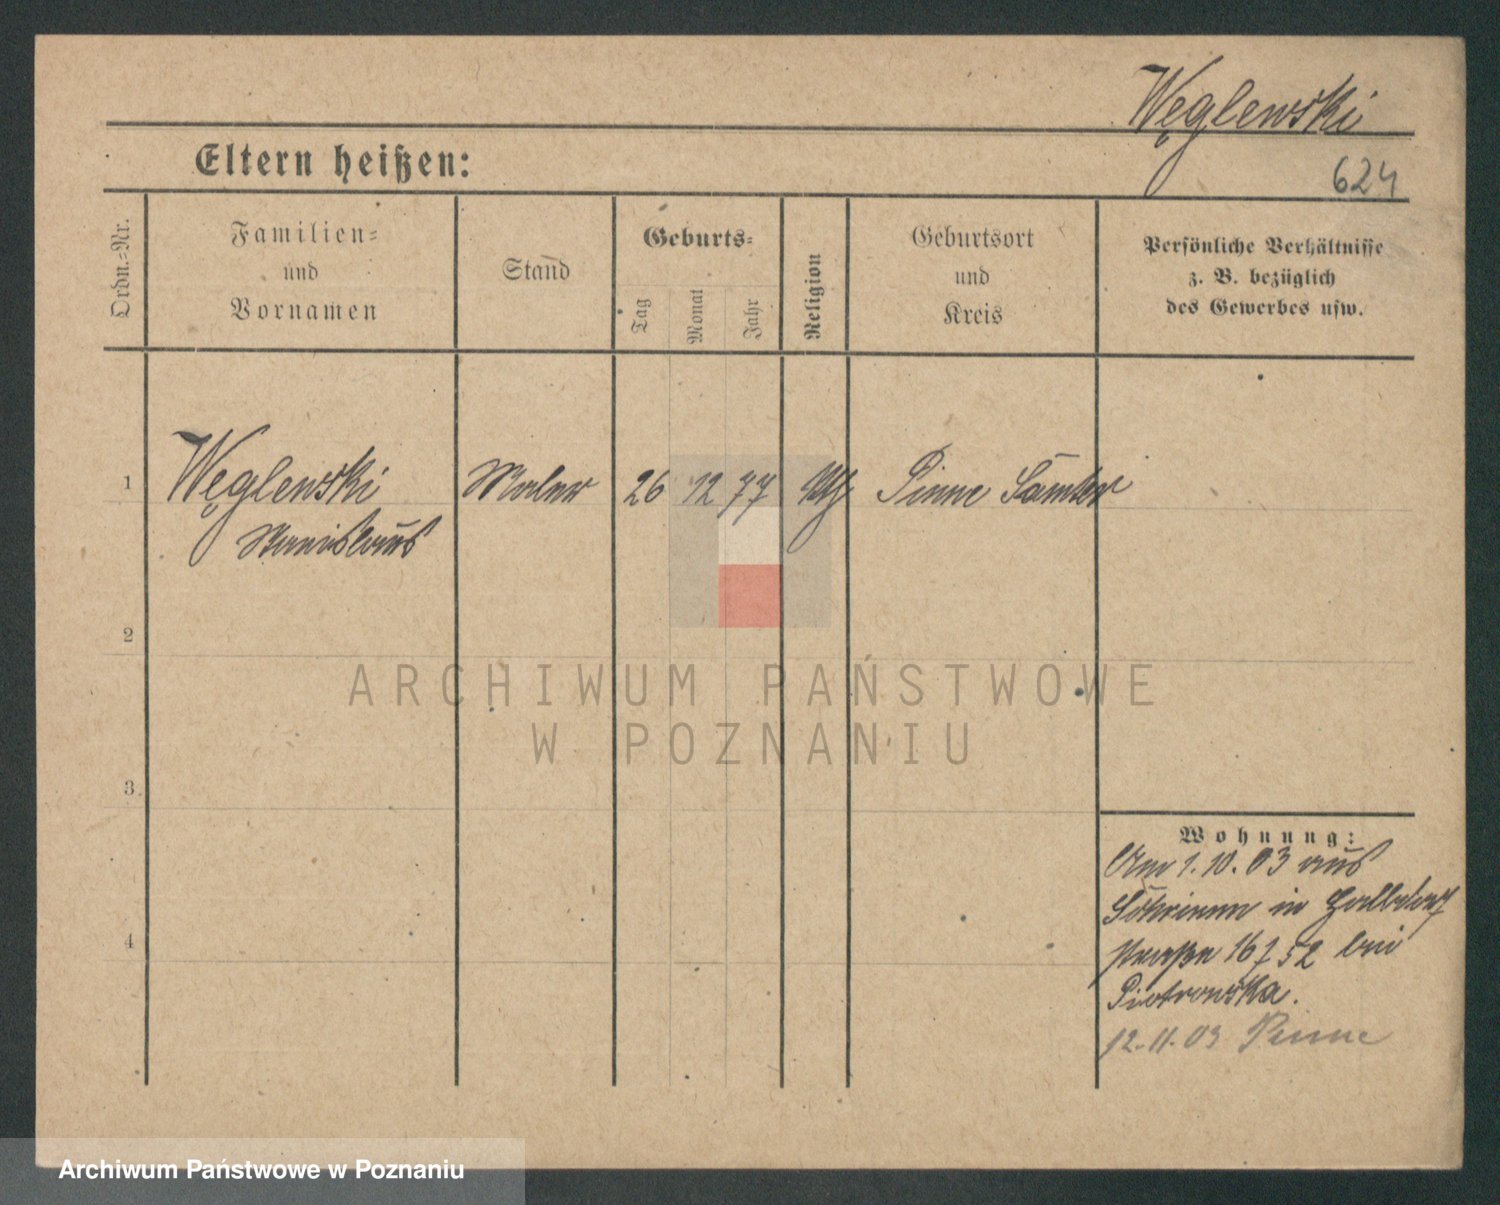 Węglewski
Eltern heißen:
624
Ordn.-Nr.
Familien-
und
Vornamen
Stand
Geburts-
Tag
Monat
Jahr
Religion
Geburtsort
und
Kreis
Persönliche Verhältnisse
z. B. bezüglich
des Gewerbes usw.
1 Węglewski Maler 26 12 77 Pinne Samter
Stanislaus
2
3
4
Wohnung:
Am 1.10.03 aus
in Halbdorf
straße 16 bei
Piotrowska.
12.11.03 Pinne
ARCHIWUM PAŃSTWOWE
W POZNANIU
Archiwum Państwowe w Poznaniu